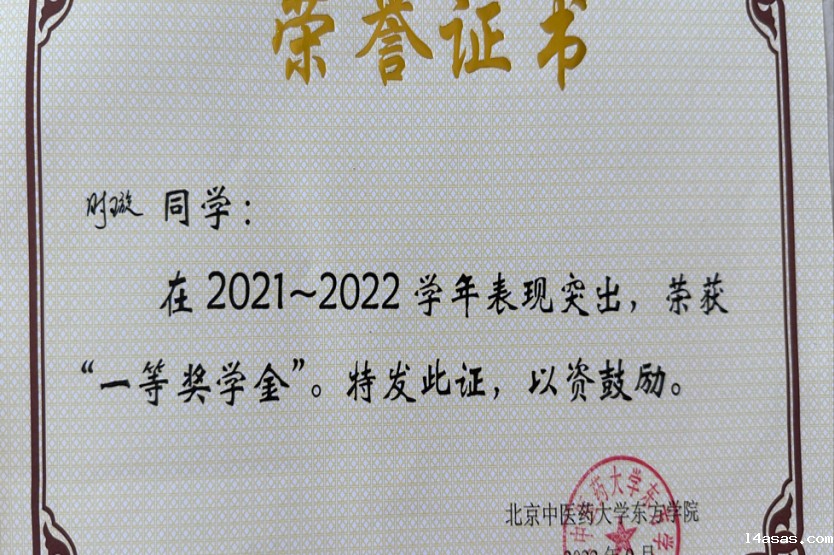 荣誉证书
时璇 同学：
在 2021~2022 学年表现突出，荣获
“一等奖学金”。特发此证，以资鼓励。
北京中医药大学东方学院
14asas.com